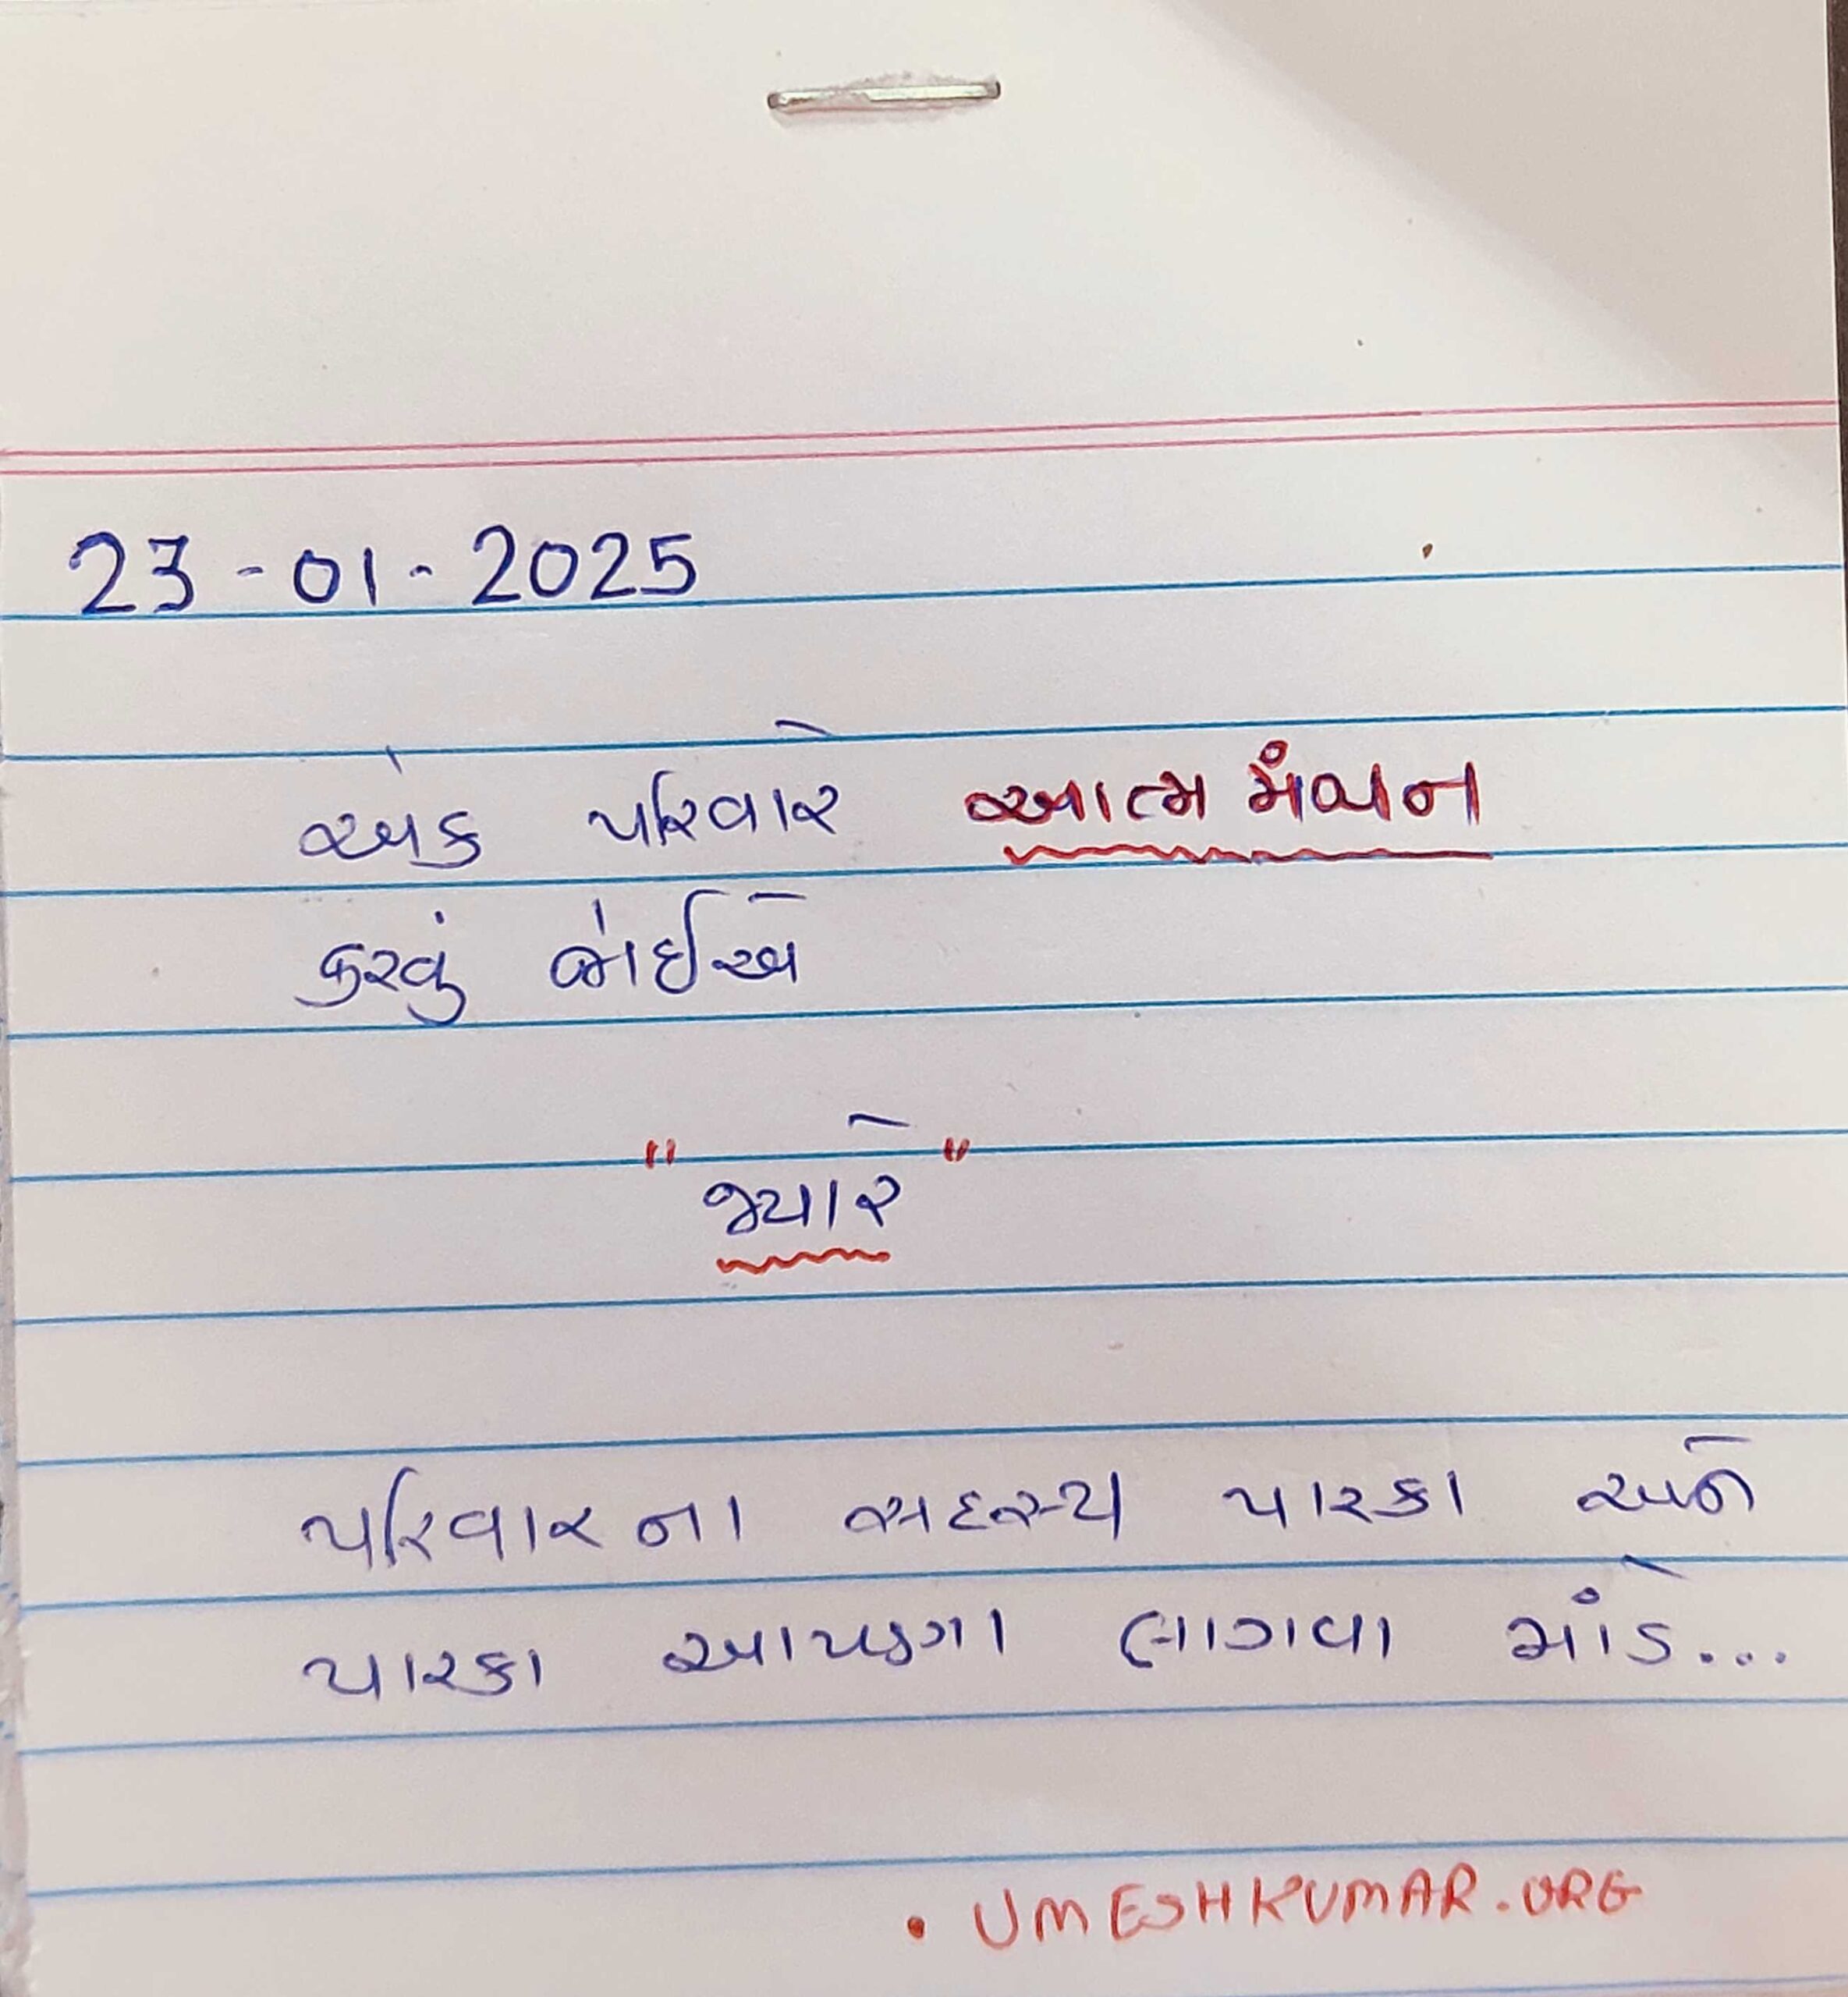 23-01-2025
એક પરિવારે આત્મ મંથન
કરવું જોઈએ
"જ્યારે"
પરિવારના સદસ્ય પારકા અને
પારકા આપણા લાગવા માંડે...
• UMESHKUMAR.ORG